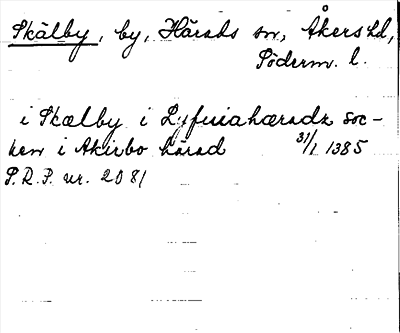 Skälby, by, Härads sn, Åkers hd,
Söderm. l.
i Skælby i Lyfuiahæradz soc-
ken i Akirbo härad 31/1 1385
S.R.P. nr. 2081